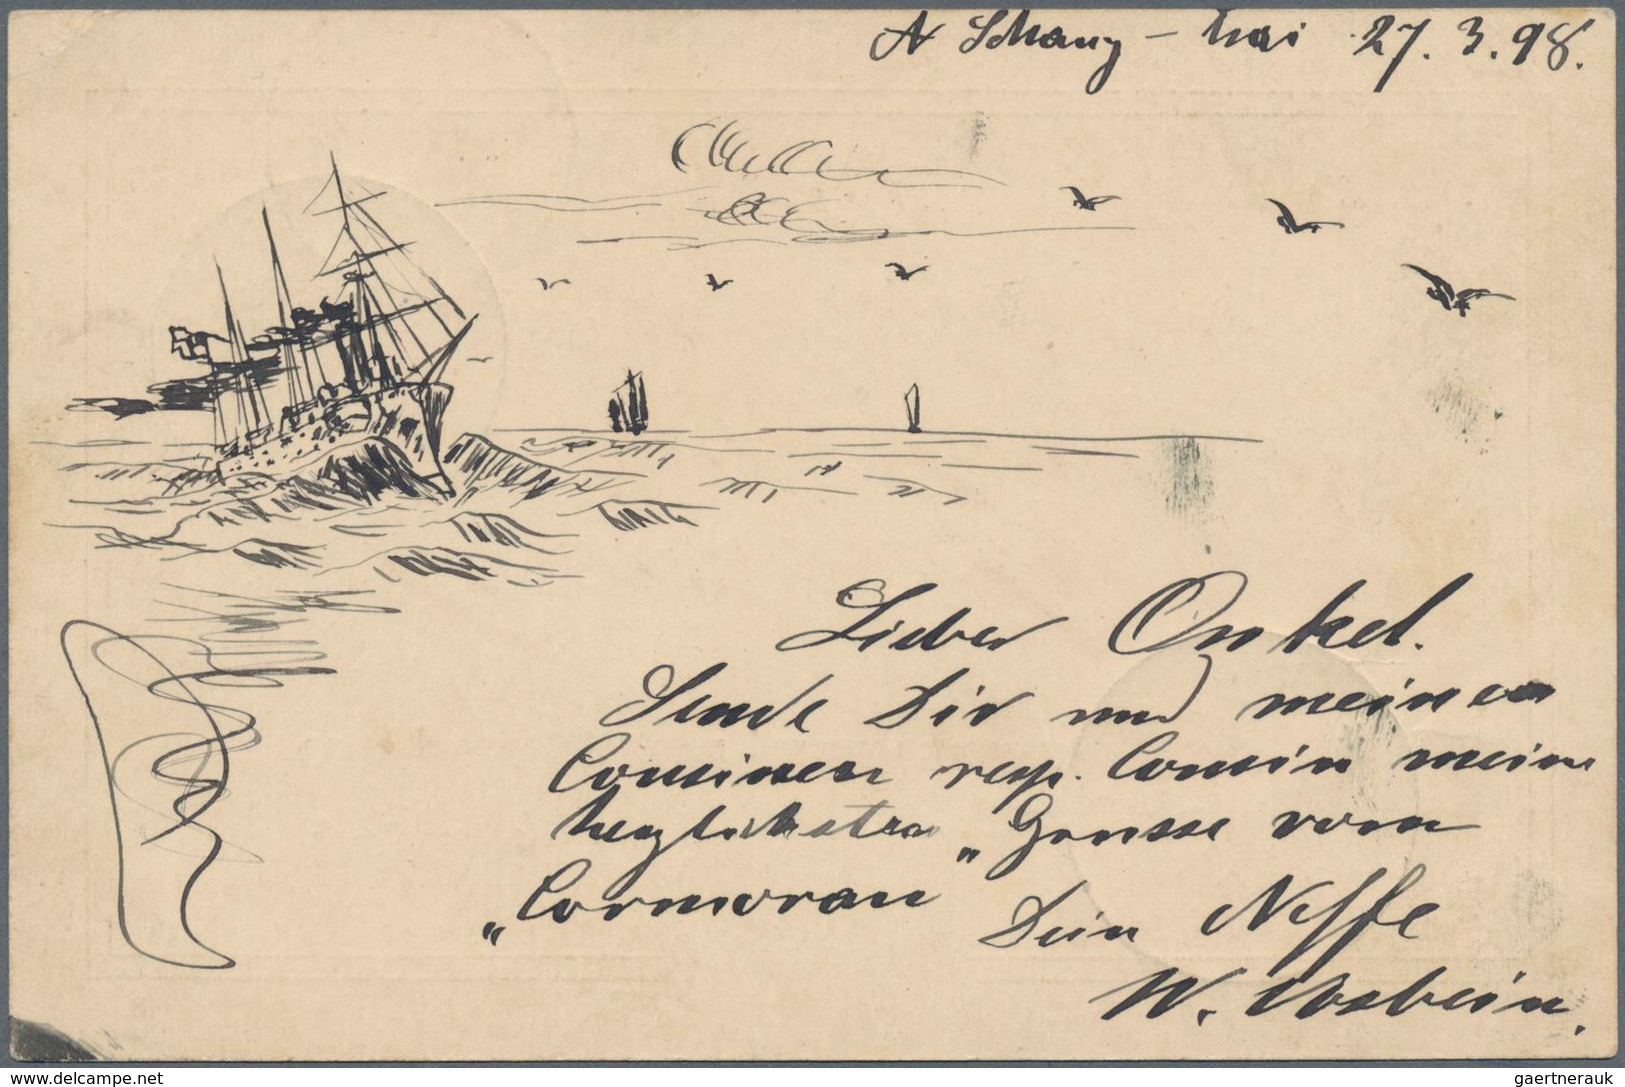 Schang-hai 27.3.98.
Lieber Onkel.
Sende Dir und meinen
Cousinen resp. Cousin meine
herzlichsten Grüsse vom
„Cormoran"
Dein Neffe
W.
www.delcampe.net
gaertnerauk